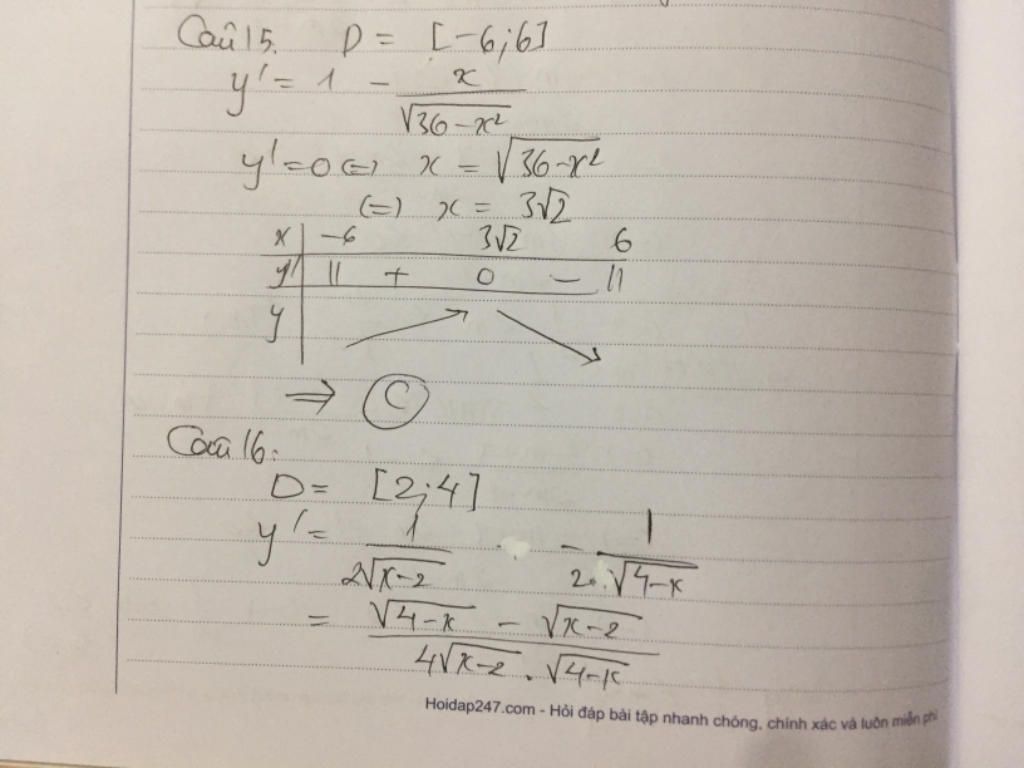 Câu 15. D = [-6;6]
y' = 1 - x/√(36-x²)
y' = 0 (=) x = √(36-x²)
(=) x = 3√2
x | -6 3√2 6
y' | || + 0 - ||
y | ↗ ↘
⇒ C
Câu 16.
D = [2;4]
y' = 1/(2√(x-2)) - 1/(2.√(4-x))
= (√(4-x) - √(x-2))/(4√(x-2) . √(4-x))
Hoidap247.com - Hỏi đáp bài tập nhanh chóng, chính xác và luôn miễn phí